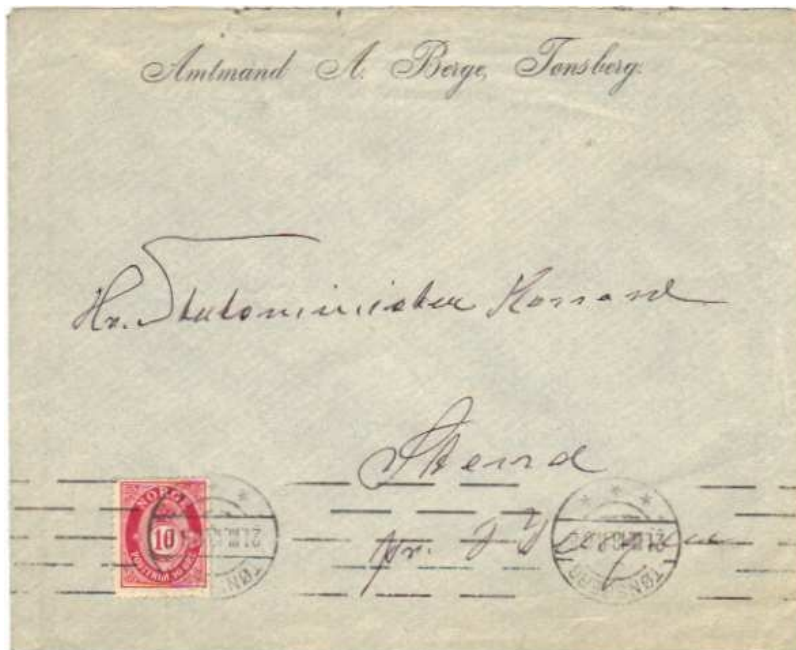 Amtmand A. Berge, Tønsberg.
Hr. Statsminister Konow
Stend
pr. Bergen
NORGE
10
TØNSBERG